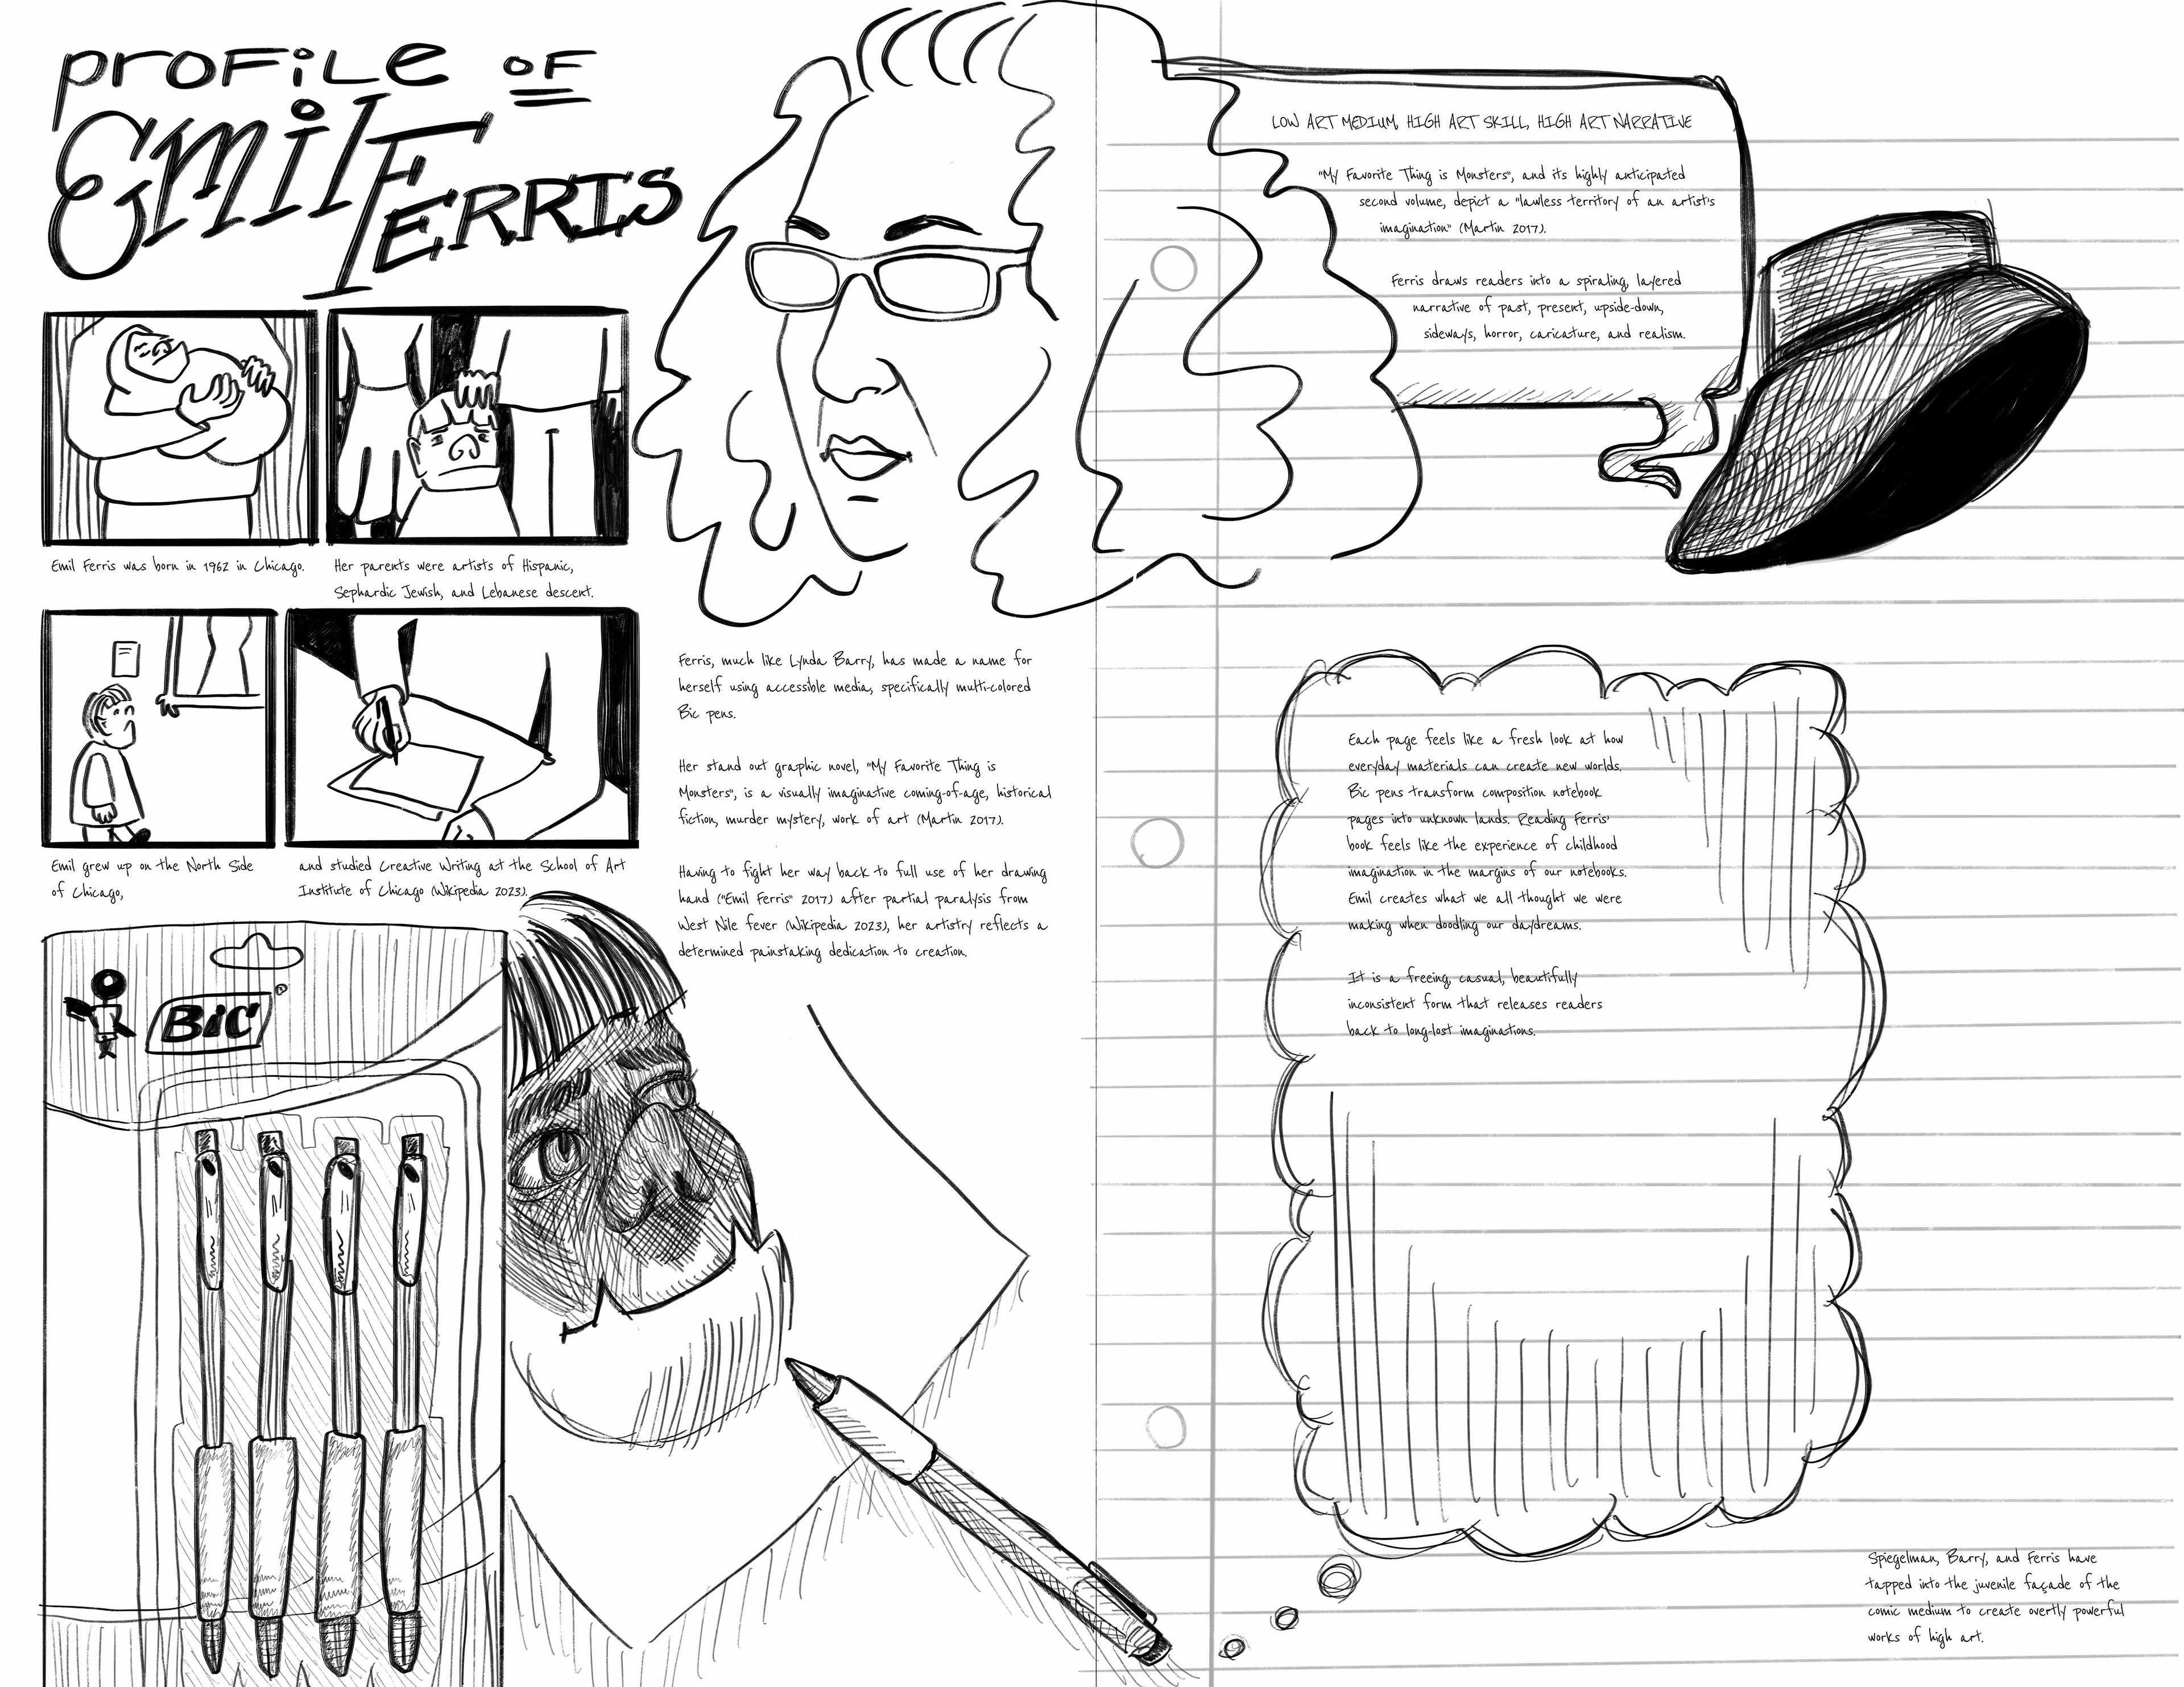 PROFILE OF
EMIL FERRIS
Emil Ferris was born in 1962 in Chicago.
Her parents were artists of Hispanic,
Sephardic Jewish, and Lebanese descent.
Emil grew up on the North Side
of Chicago,
and studied Creative Writing at the School of Art
Institute of Chicago (Wikipedia 2023).
BiC
Ferris, much like Lynda Barry, has made a name for
herself using accessible media, specifically multi-colored
Bic pens.
Her stand out graphic novel, "My Favorite Thing is
Monsters", is a visually imaginative coming-of-age, historical
fiction, murder mystery, work of art (Martin 2017).
Having to fight her way back to full use of her drawing
hand ("Emil Ferris" 2017) after partial paralysis from
West Nile fever (Wikipedia 2023), her artistry reflects a
determined painstaking dedication to creation.
LOW ART MEDIUM, HIGH ART SKILL, HIGH ART NARRATIVE
"My Favorite Thing is Monsters", and its highly anticipated
second volume, depict a "lawless territory of an artist's
imagination" (Martin 2017).
Ferris draws readers into a spiraling, layered
narrative of past, present, upside-down,
sideways, horror, caricature, and realism.
Each page feels like a fresh look at how
everyday materials can create new worlds.
Bic pens transform composition notebook
pages into unknown lands. Reading Ferris'
book feels like the experience of childhood
imagination in the margins of our notebooks.
Emil creates what we all thought we were
making when doodling our daydreams.
It is a freeing, casual, beautifully
inconsistent form that releases readers
back to long-lost imaginations.
Spiegelman, Barry, and Ferris have
tapped into the juvenile façade of the
comic medium to create overtly powerful
works of high art.